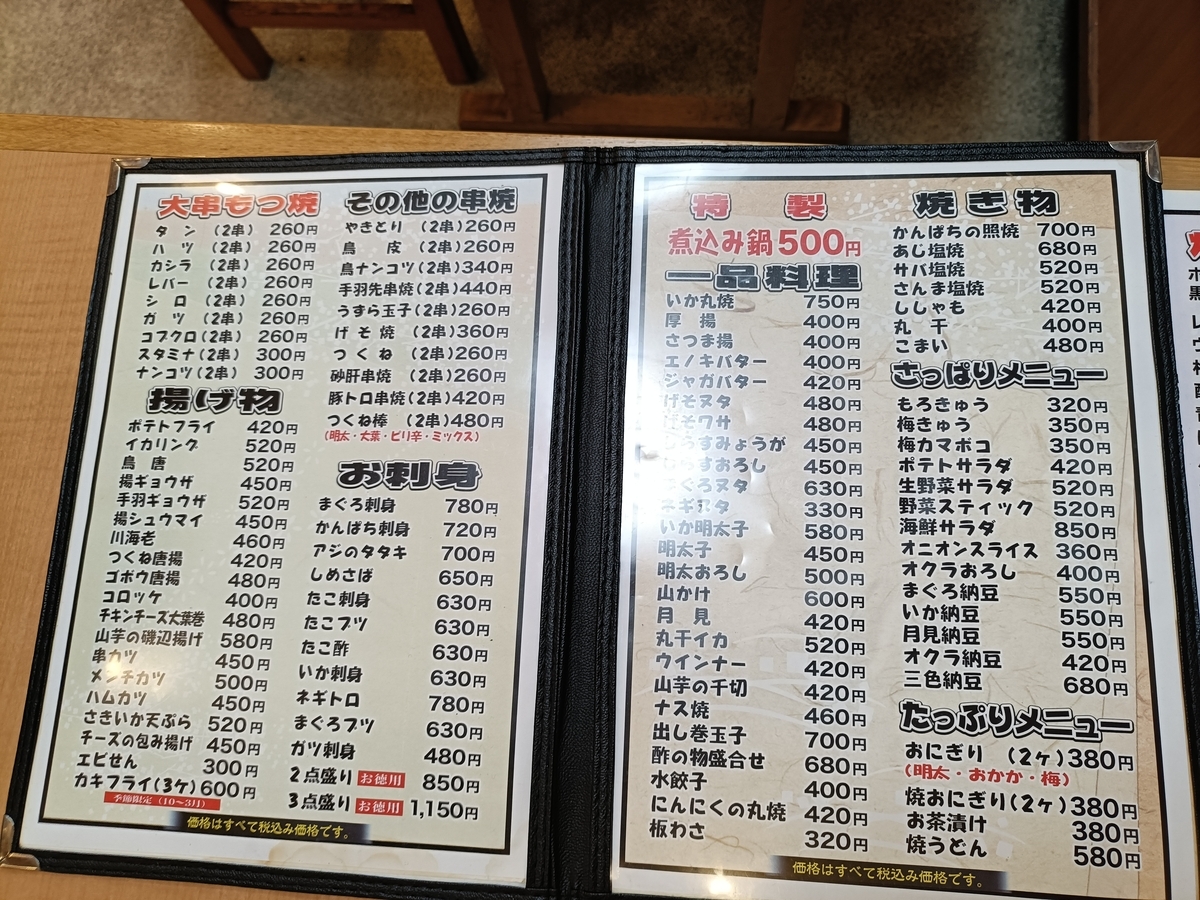 大串もつ焼
タン (2串) 260円
ハツ (2串) 260円
カシラ (2串) 260円
レバー (2串) 260円
シロ (2串) 260円
ガツ (2串) 260円
コブクロ (2串) 260円
スタミナ (2串) 300円
ナンコツ (2串) 300円
揚げ物
ポテトフライ 420円
イカリング 520円
鳥唐 520円
揚ギョウザ 450円
手羽ギョウザ 520円
揚シュウマイ 450円
川海老 460円
つくね唐揚 420円
ゴボウ唐揚 480円
コロッケ 400円
チキンチーズ大葉巻 480円
山芋の磯辺揚げ 580円
串カツ 450円
メンチカツ 500円
ハムカツ 450円
さきいか天ぷら 520円
チーズの包み揚げ 450円
エビせん 300円
カキフライ(3ヶ) 600円
季節限定 (10〜3月)
その他の串焼
やきとり (2串) 260円
鳥皮 (2串) 260円
鳥ナンコツ (2串) 340円
手羽先串焼 (2串) 440円
うずら玉子 (2串) 260円
げそ焼 (2串) 360円
つくね (2串) 260円
砂肝串焼 (2串) 260円
豚トロ串焼 (2串) 420円
つくね棒 (2串) 480円
(明太・大葉・ピリ辛・ミックス)
お刺身
まぐろ刺身 780円
かんぱち刺身 720円
アジのタタキ 700円
しめさば 650円
たこ刺身 630円
たこブツ 630円
たこ酢 630円
いか刺身 630円
ネギトロ 780円
まぐろブツ 630円
ガツ刺身 480円
2点盛り お徳用 850円
3点盛り お徳用 1,150円
価格はすべて税込み価格です。
特製
煮込み鍋 500円
一品料理
いか丸焼 750円
厚揚 400円
さつま揚 400円
エノキバター 400円
ジャガバター 420円
げそヌタ 480円
げそワサ 480円
しらすみょうが 450円
しらすおろし 450円
まぐろヌタ 630円
ネギヌタ 330円
いか明太子 580円
明太子 450円
明太おろし 500円
山かけ 600円
月見 420円
丸干イカ 520円
ウインナー 420円
山芋の千切 420円
ナス焼 460円
出し巻玉子 700円
酢の物盛合せ 680円
水餃子 400円
にんにくの丸焼 420円
板わさ 320円
焼き物
かんぱちの照焼 700円
あじ塩焼 680円
サバ塩焼 520円
さんま塩焼 520円
ししゃも 420円
丸干 400円
こまい 480円
さっぱりメニュー
もろきゅう 320円
梅きゅう 350円
梅カマボコ 350円
ポテトサラダ 420円
生野菜サラダ 520円
野菜スティック 520円
海鮮サラダ 850円
オニオンスライス 360円
オクラおろし 400円
まぐろ納豆 550円
いか納豆 550円
月見納豆 550円
オクラ納豆 420円
三色納豆 680円
たっぷりメニュー
おにぎり (2ヶ) 380円
(明太・おかか・梅)
焼おにぎり (2ヶ) 380円
お茶漬け 380円
焼うどん 580円
価格はすべて税込み価格です。